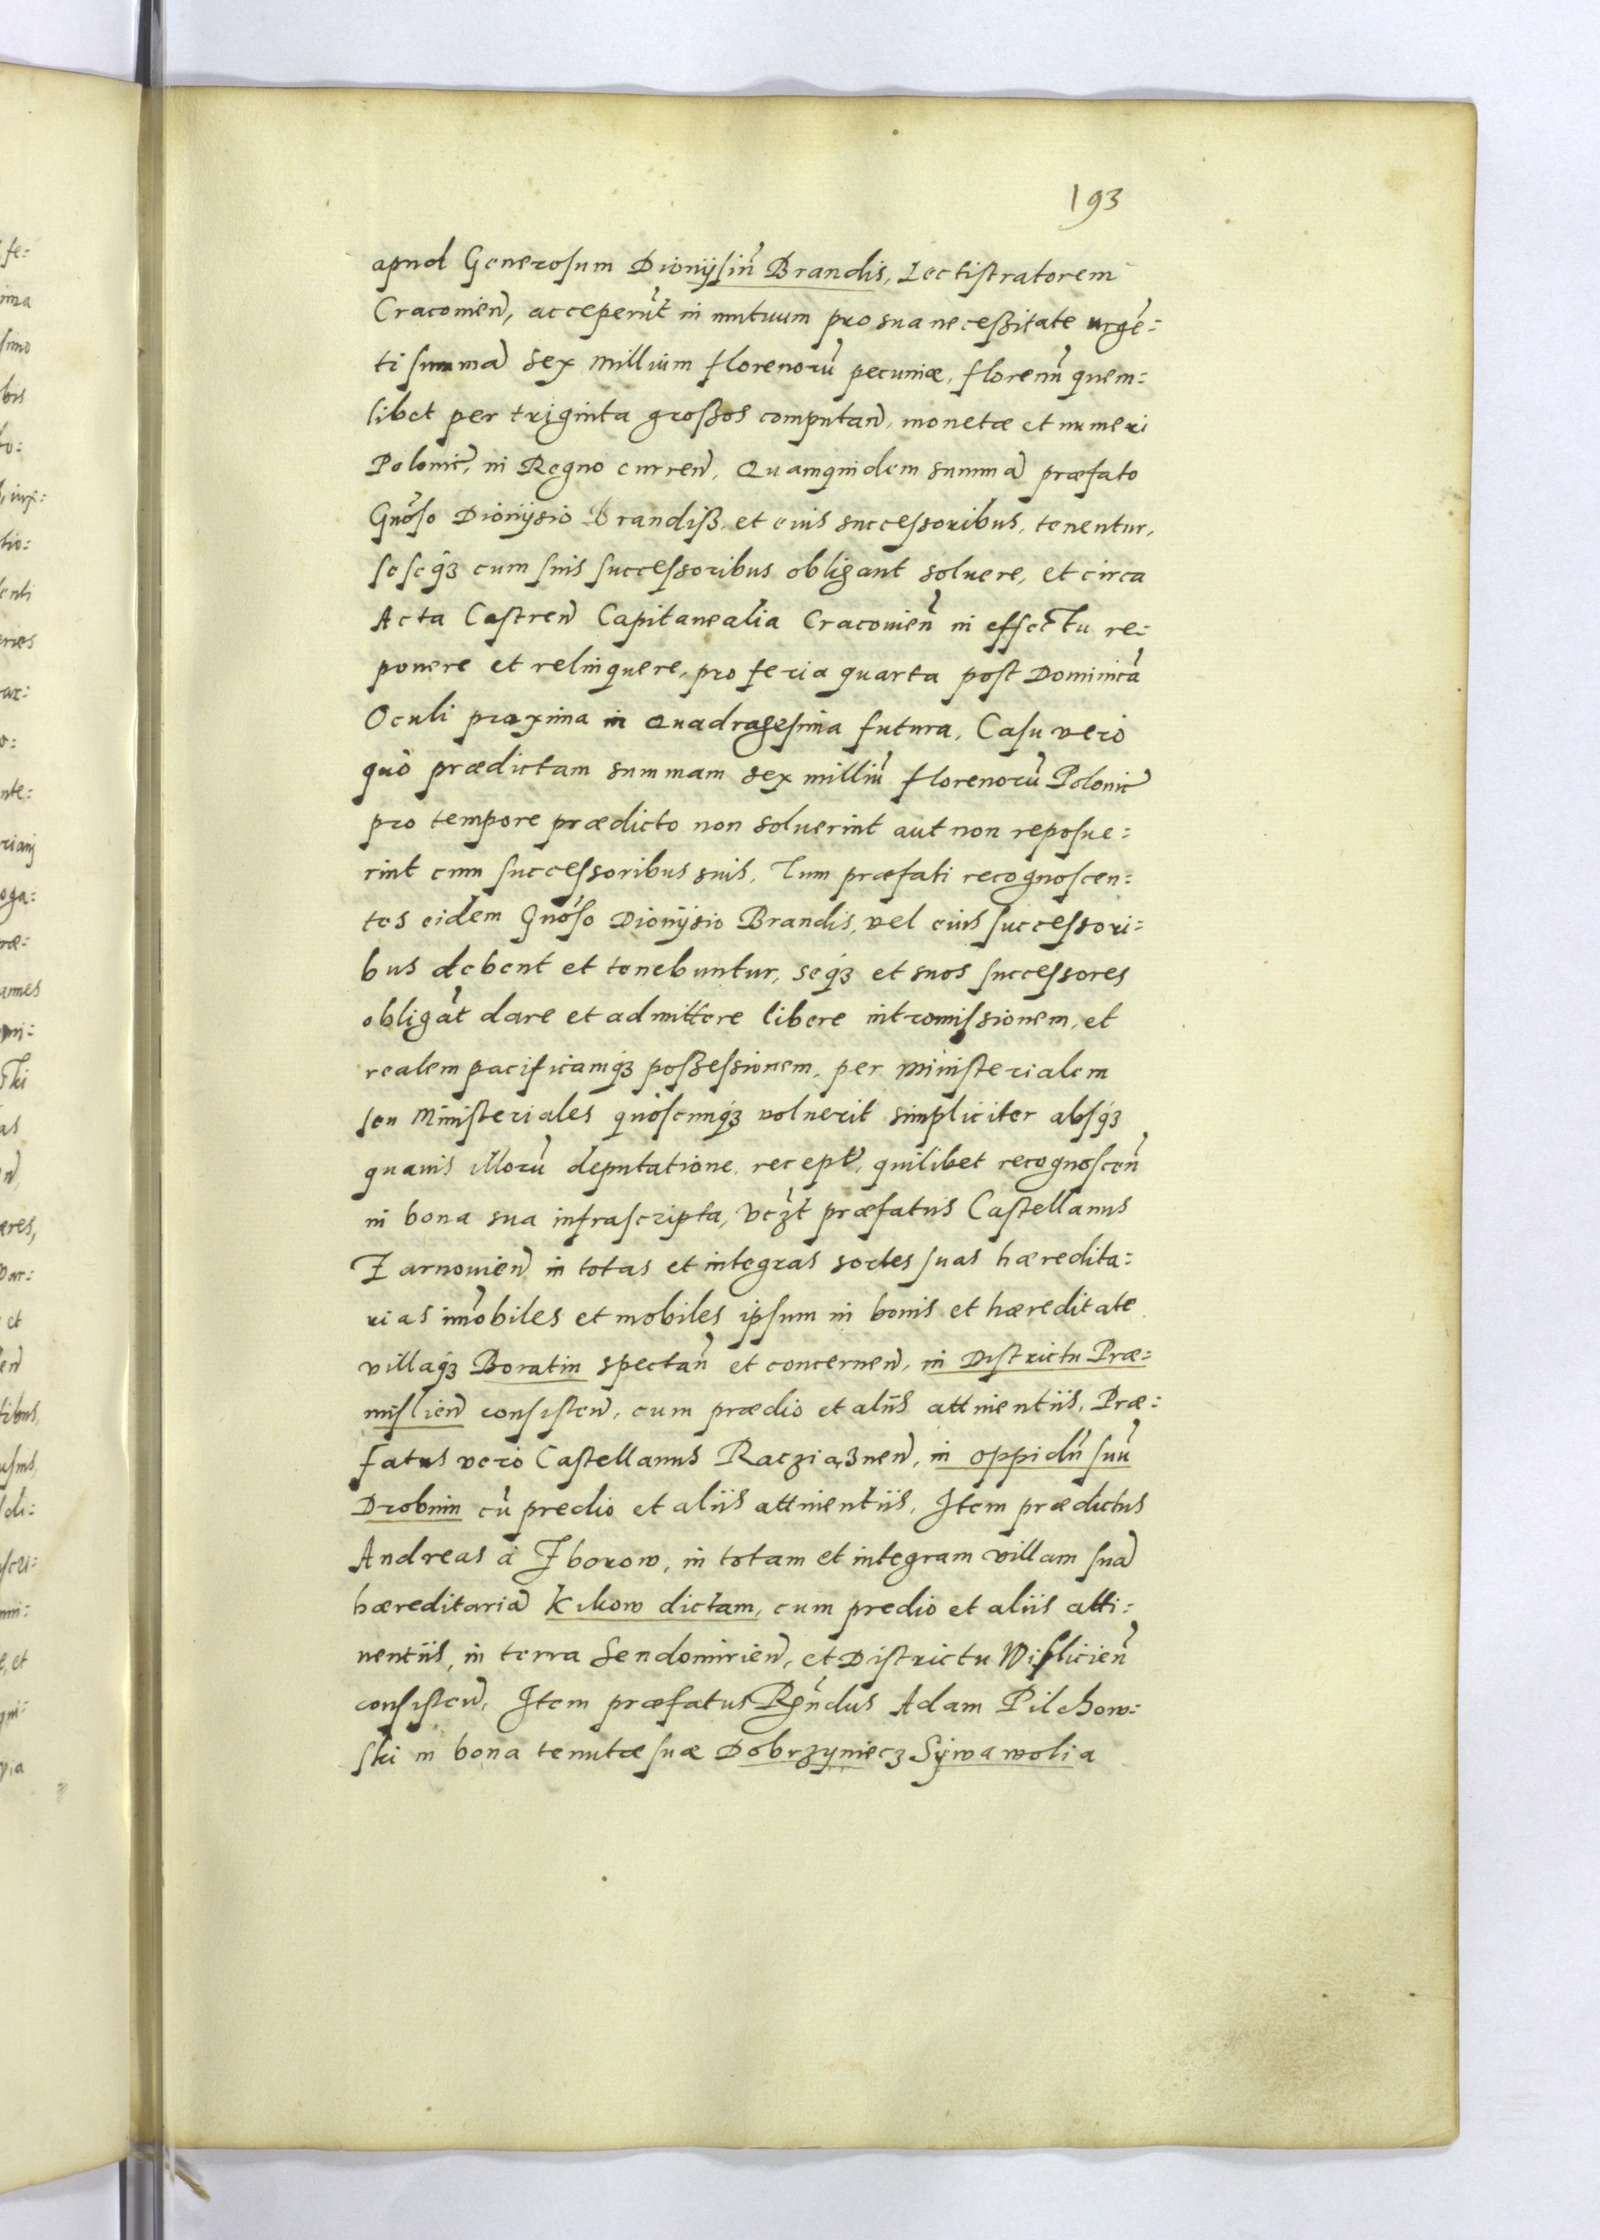 193
apud Generosum Dionijsiũ Brandis, Lectistratorem
Cracovieñ, acceperũt in mutuum pro sua necessitate urgẽ:
ti summã sex Millium florenorũ pecuniæ, florenũ quem:
libet per triginta grossos computañ, monetæ et numeri
Polonic̃, in Regno curreñ, Quamquidem summã præfato
Gnõso Dionijsio Brandiss, et eius successoribus, tenentur,
seseq꜄ cum suis successoribus obligant soluere, et circa
Acta Castreñ Capitanealia Cracovieñ in effectu re:
ponere et relinquere, pro feria quarta post Dominicã
Oculi proxima in Quadragesima futura, Casu vero
quò prædictam summam sex milliũ florenorũ Polonic̃
pro tempore prædicto non soluerint aut non reposue:
rint cum successoribus suis, Tum præfati recognoscen:
tes eidem Gnõso Dionijsio Brandis, vel eius successori:
bus debent et tenebuntur, seq꜄ et suos successores
obligãt dare et admittere libere intromissionem, et
realem pacificamq꜄ possessionem, per Ministerialem
seu Ministeriales quoscunq꜄ voluerit simpliciter absq꜄
quavis illorũ deputatione recept, quilibet recognosceñ
in bona sua infrascripta, vcz̃t præfatus Castellanus
Zarnovieñ in totas et integras sortes suas hæredita:
rias im̃obiles et mobiles ipsum in bonis et hæreditate
villaq꜄ Boratin spectañ et concerneñ, in Districtu Præ:
mislieñ consisteñ, cum prædio et aliis attinentiis, Præ:
fatus vero Castellanus Racziązneñ, in oppidũ suũ
Drobnin cũ predio et aliis attinentiis, Item prædictus
Andreas à Zborow, in totam et integram villam suã
hæreditariã Kikow dictam, cum predio et aliis atti:
nentiis, in terra Sendomirieñ, et Districtu Wislicieñ
consisteñ, Item præfatus Rñdus Adam Pilchow:
ski in bona tenutæ suæ Dobrzyniecz Sijwawolia